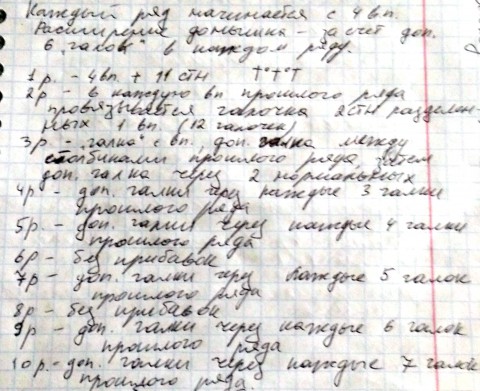 Каждый ряд начинается с 4 вп.
Расширение донышка - за счет доп.
6 "галок" в каждом ряду.
1р. - 4вп. + 11 стн т°т°т
2р - в каждую вп прошлого ряда
провязывается галочка 2стн разделен-
ных 1 вп. (12 галочек)
3р. - "галка" с вп., доп. галка между
столбиками прошлого ряда, затем
доп. галка через 2 нормальных
4р - доп. галки через каждые 3 галки
прошлого ряда
5р. - доп. галки через каждые 4 галки
прошлого ряда
6р - без прибавок
7р - доп. галки через каждые 5 галок
прошлого ряда
8р - без прибавок
9р - доп. галки через каждые 6 галок
прошлого ряда
10р. - доп. галки через каждые 7 галок
прошлого ряда.